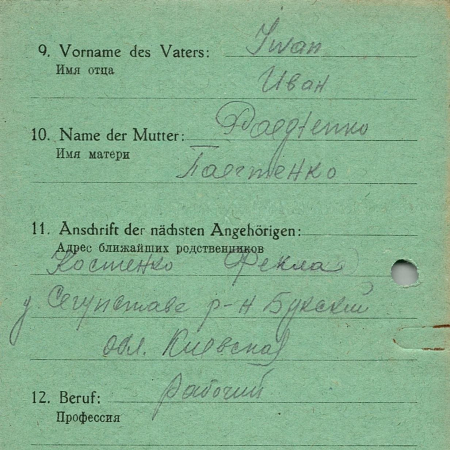 9. Vorname des Vaters: Iwan
Имя отца
Иван
10. Name der Mutter:
Имя матери
11. Anschrift der nächsten Angehörigen:
Адрес ближайших родственников
Костенко Фекла
р-н Букский
обл. Киевская
12. Beruf: рабочий
Профессия